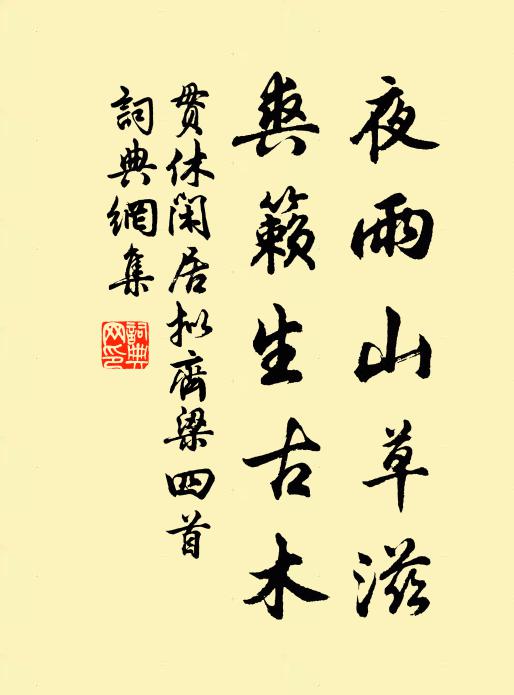 夜雨山草滋
爽籟生古木
贯休闲居拟齊梁四首
詞典網集
詞典網印